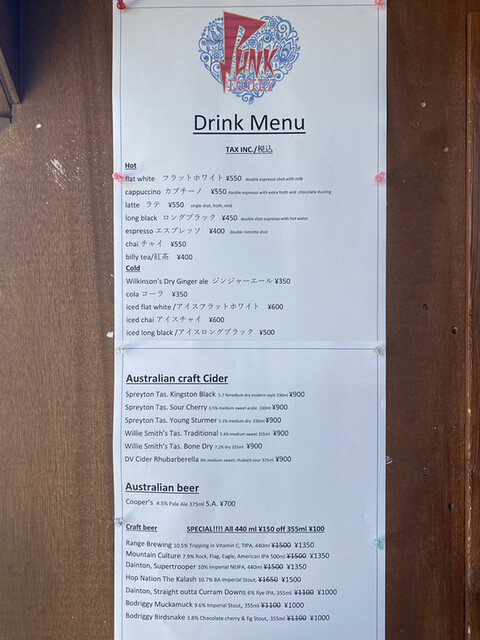 PUNK
Drink Menu
TAX INC./税込
Hot
flat white フラットホワイト ¥550 double espresso shot with milk
cappucino カプチーノ ¥550 double espresso with extra froth and chocolate dusting
latte ラテ ¥550 single shot, froth, mild
long black ロングブラック ¥450 double shot espresso with hot water
espresso エスプレッソ ¥400 double ristretto shot
chai チャイ ¥550
billy tea/紅茶 ¥400
Cold
Wilkinson's Dry Ginger ale ジンジャーエール ¥350
cola コーラ ¥350
iced flat white /アイスフラットホワイト ¥600
iced chai アイスチャイ ¥600
iced long black /アイスロングブラック ¥500
Australian craft Cider
Spreyton Tas. Kingston Black 5.7 %medium dry modern style 330ml ¥900
Spreyton Tas. Sour Cherry 3.5% medium sweet acidic 330ml ¥900
Spreyton Tas. Young Sturmer 5.1% medium dry 330ml ¥900
Willie Smith's Tas. Traditional 5.4% medium sweet 355ml ¥900
Willie Smith's Tas. Bone Dry 7.2% dry 355ml ¥900
DV Cider Rhubarberella 8% medium sweet, rhubarb sour 375ml ¥900
Australian beer
Cooper's 4.5% Pale Ale 375ml S.A. ¥700
Craft beer SPECIAL!!!! All 440 ml ¥150 off 355ml ¥100
Range Brewing 10.5% Tripping in Vitamin C, TIPA, 440ml ¥1500 ¥1350
Mountain Culture 7.9% Rock, Flag, Eagle, American IPA 500ml ¥1500 ¥1350
Dainton, Supertrooper 10% Imperial NEIPA, 440ml ¥1500 ¥1350
Hop Nation The Kalash 10.7% BA Imperial Stout, ¥1650 ¥1500
Dainton, Straight outta Curram Downs 6% Rye IPA, 355ml ¥1100 ¥1000
Bodriggy Muckamuck 9.6% Imperial Stout, 355ml ¥1100 ¥1000
Bodriggy Birdsnake 5.8% Chocolate cherry & fig Stout, 355ml ¥1100 ¥1000